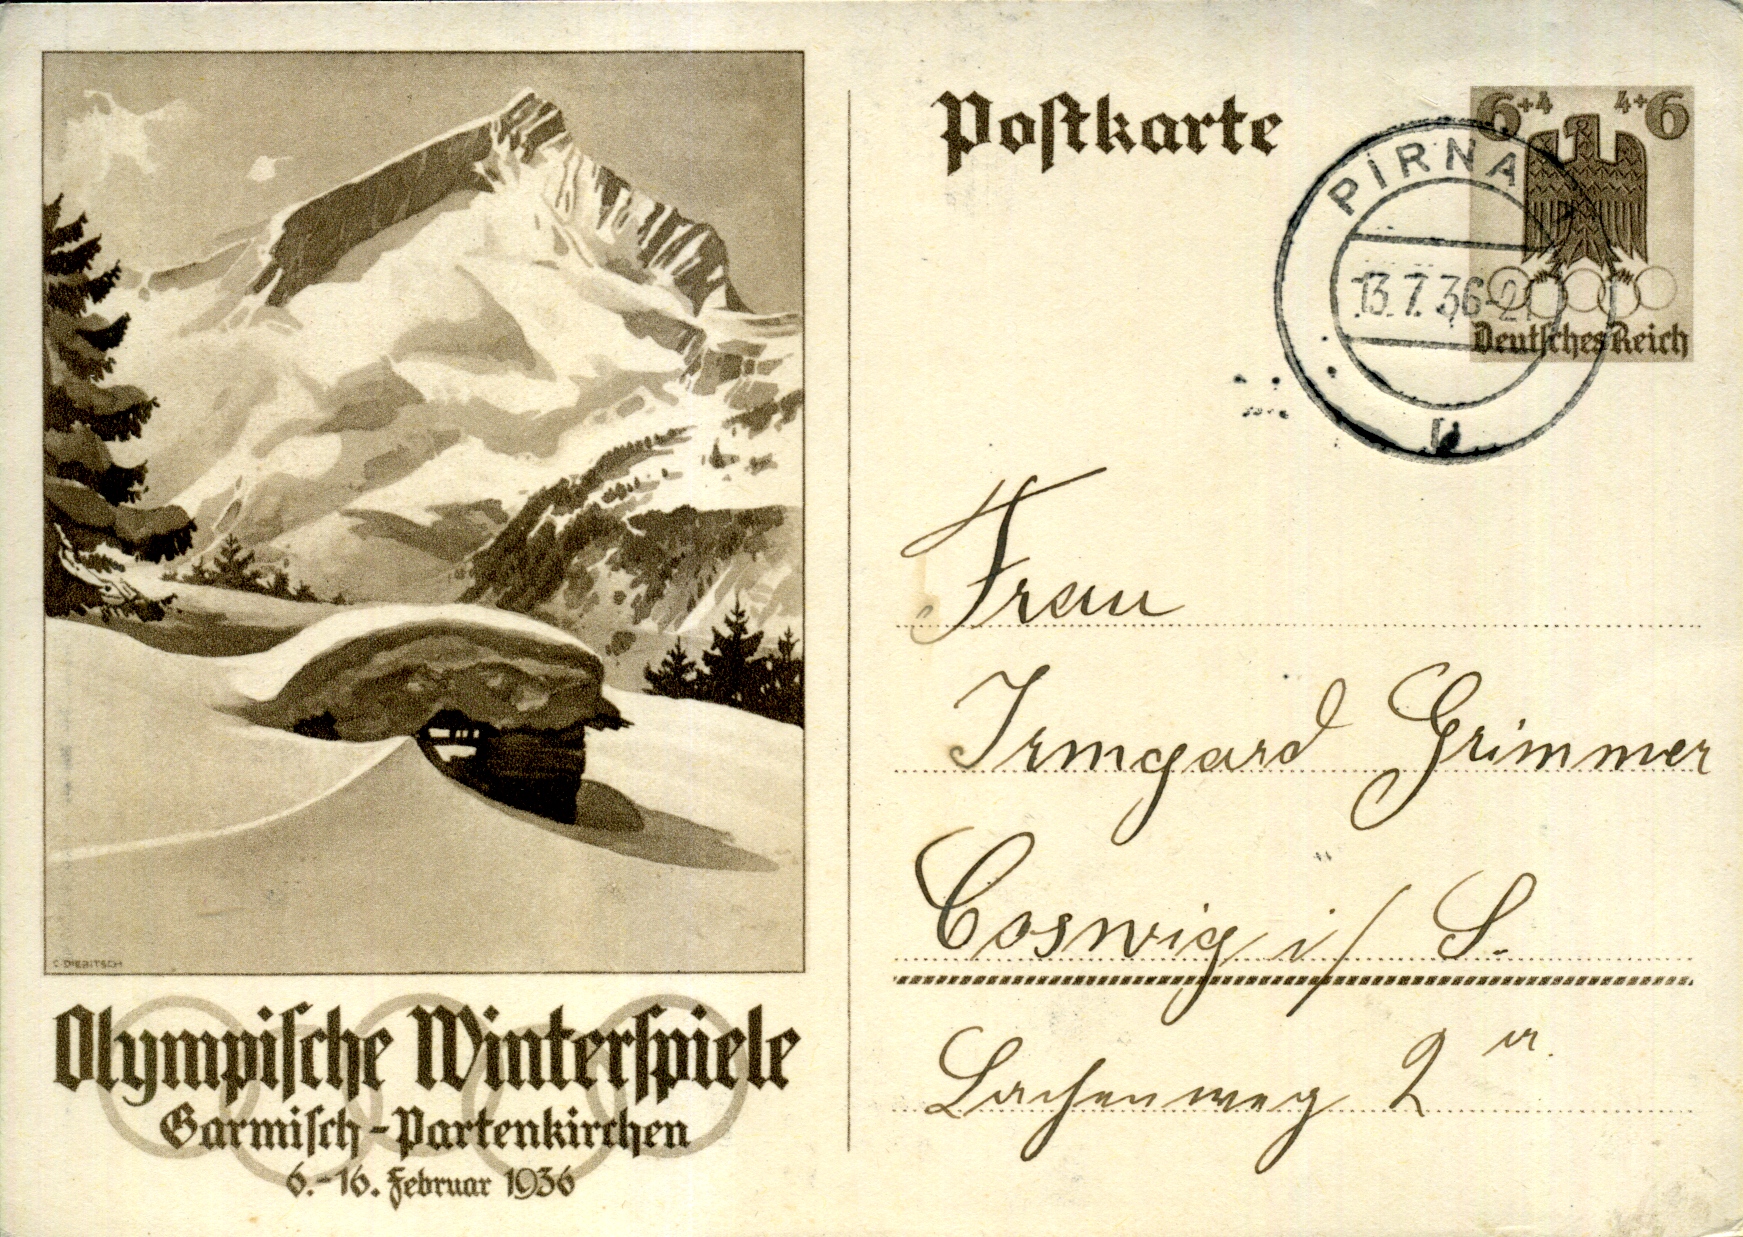 Postkarte
6+4 4+6
PIRNA
13.7.36-21
Deutsches Reich
Frau
Irmgard Grimmer
Coswig i/S.
Lachenweg 2 a.
C. DIEBITSCH
Olympische Winterspiele
Garmisch-Partenkirchen
6.-16. Februar 1936